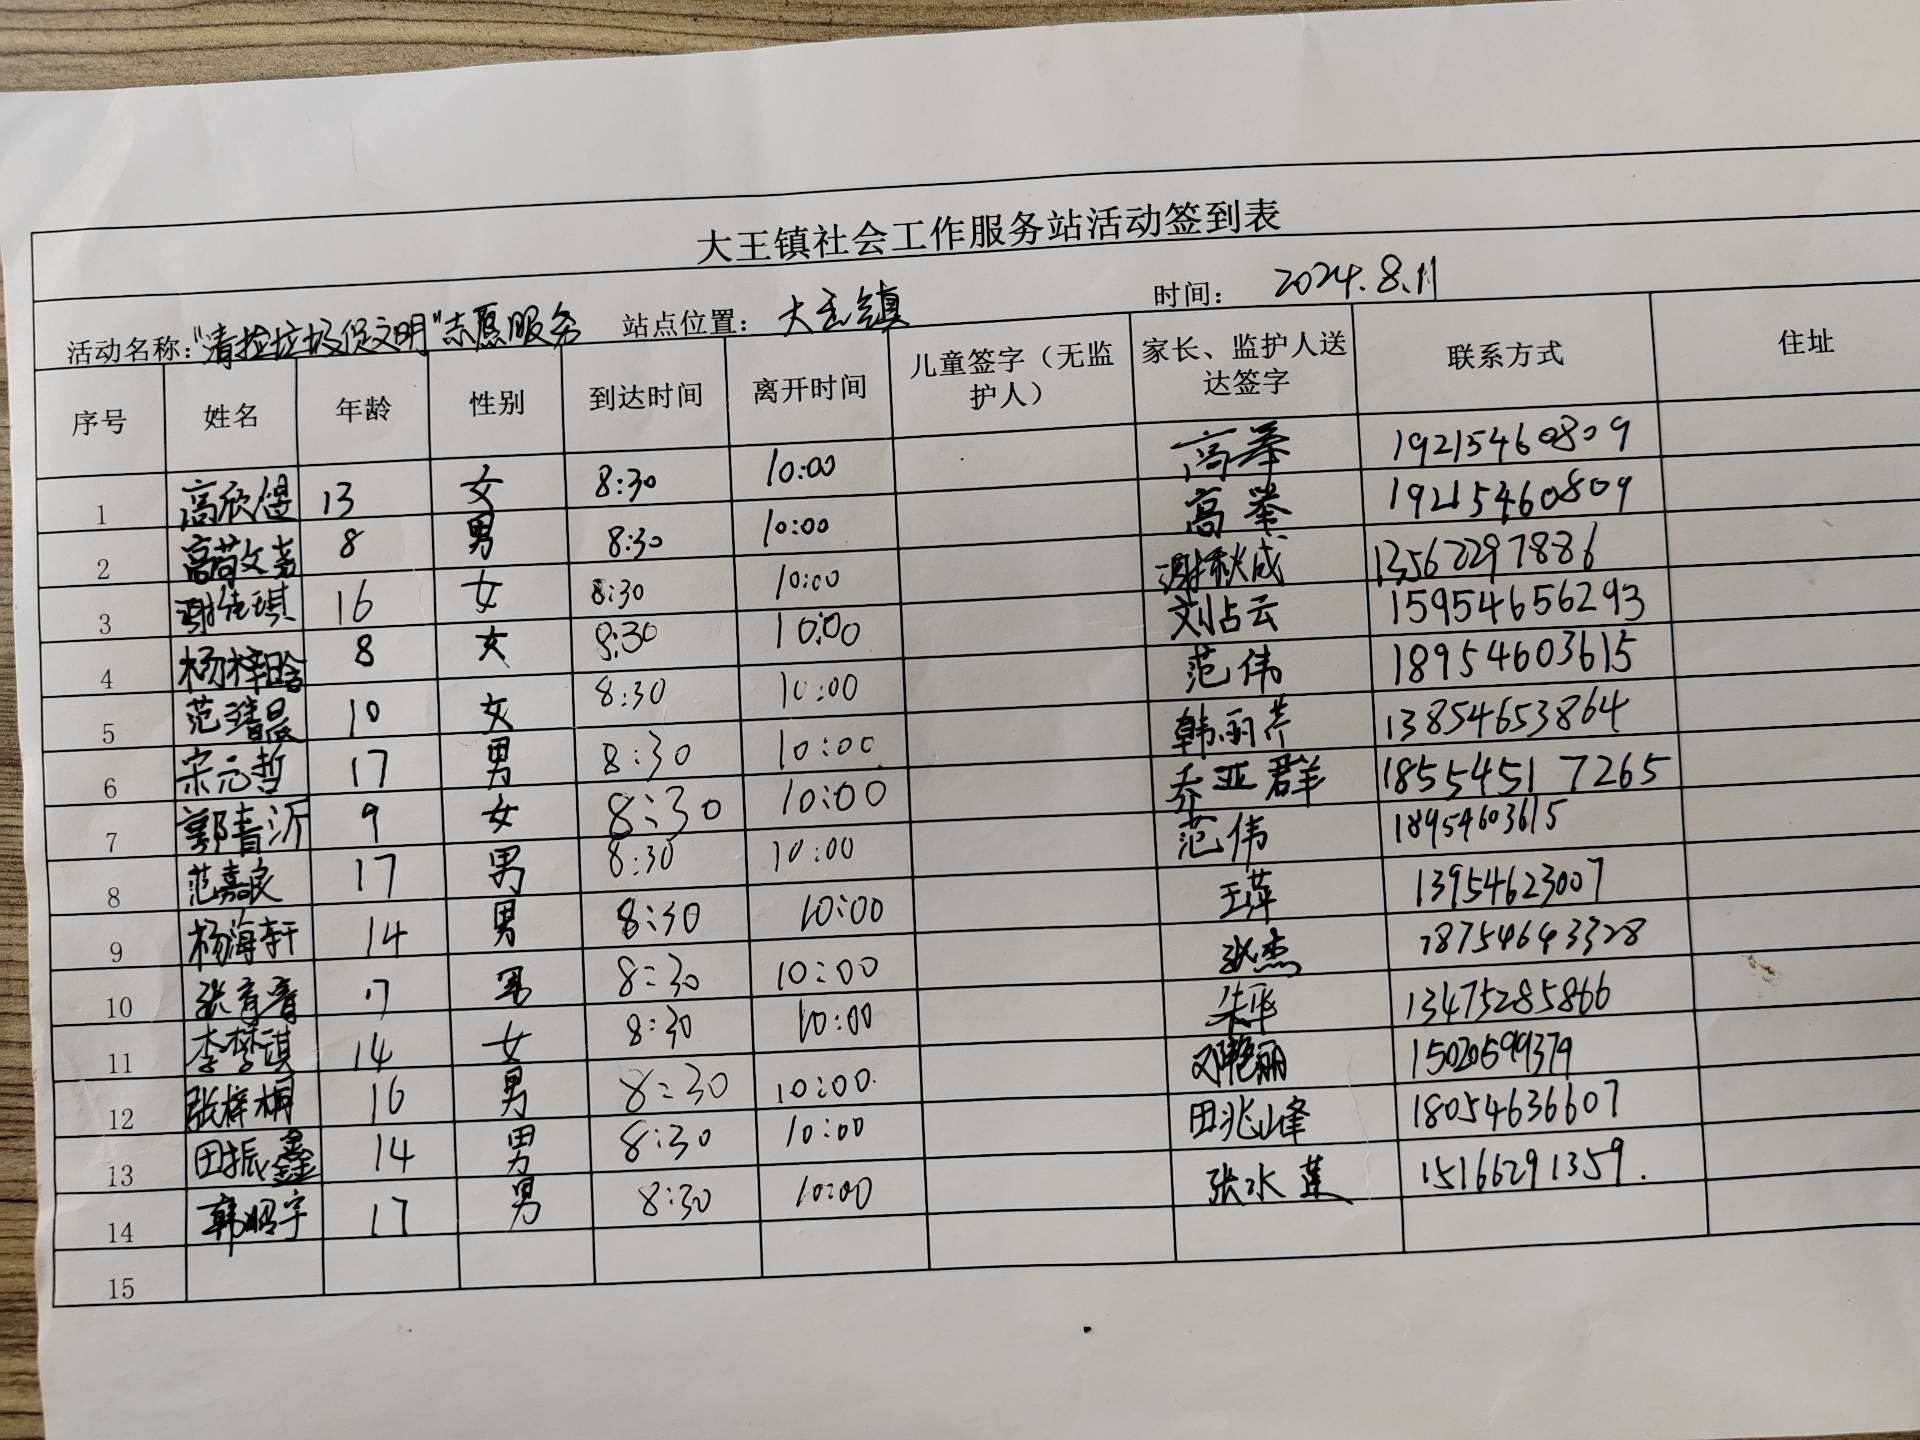 大王镇社会工作服务站活动签到表
活动名称："清捡垃圾促文明"志愿服务 站点位置：大王镇 时间：2024.8.11
序号 姓名 年龄 性别 到达时间 离开时间 儿童签字（无监护人） 家长、监护人送达签字 联系方式 住址
1 高欣煜 13 女 8:30 10:00 高举 19215460809
2 高苟文尧 8 男 8:30 10:00 高举 19215460809
3 谢佳琪 16 女 8:30 10:00 谢秋成 13562297886
4 杨梓晗 8 女 8:30 10:00 刘占云 15954656293
5 范靖晨 10 女 8:30 10:00 范伟 18954603615
6 宋元哲 17 男 8:30 10:00 韩丽芹 13854653864
7 郭青沂 9 女 8:30 10:00 乔亚群 18554517265
8 范嘉良 17 男 8:30 10:00 范伟 18954603615
9 杨海轩 14 男 8:30 10:00 王萍 13954623007
10 张育睿 17 男 8:30 10:00 张杰 18754643328
11 李梦琪 14 女 8:30 10:00 朱华 13475285866
12 张梓桐 16 男 8:30 10:00 邓艳丽 15020599379
13 田振鑫 14 男 8:30 10:00 田兆峰 18054636607
14 韩昭宇 17 男 8:30 10:00 张水莲 15166291359.
15